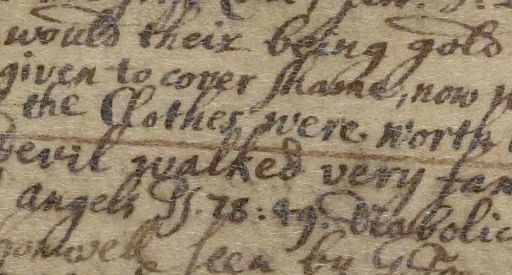 would their being gold
given to cover shame, now
the Clothes were worth
Devil walked very
angels Ps. 78: 49. Diabolic
seen by